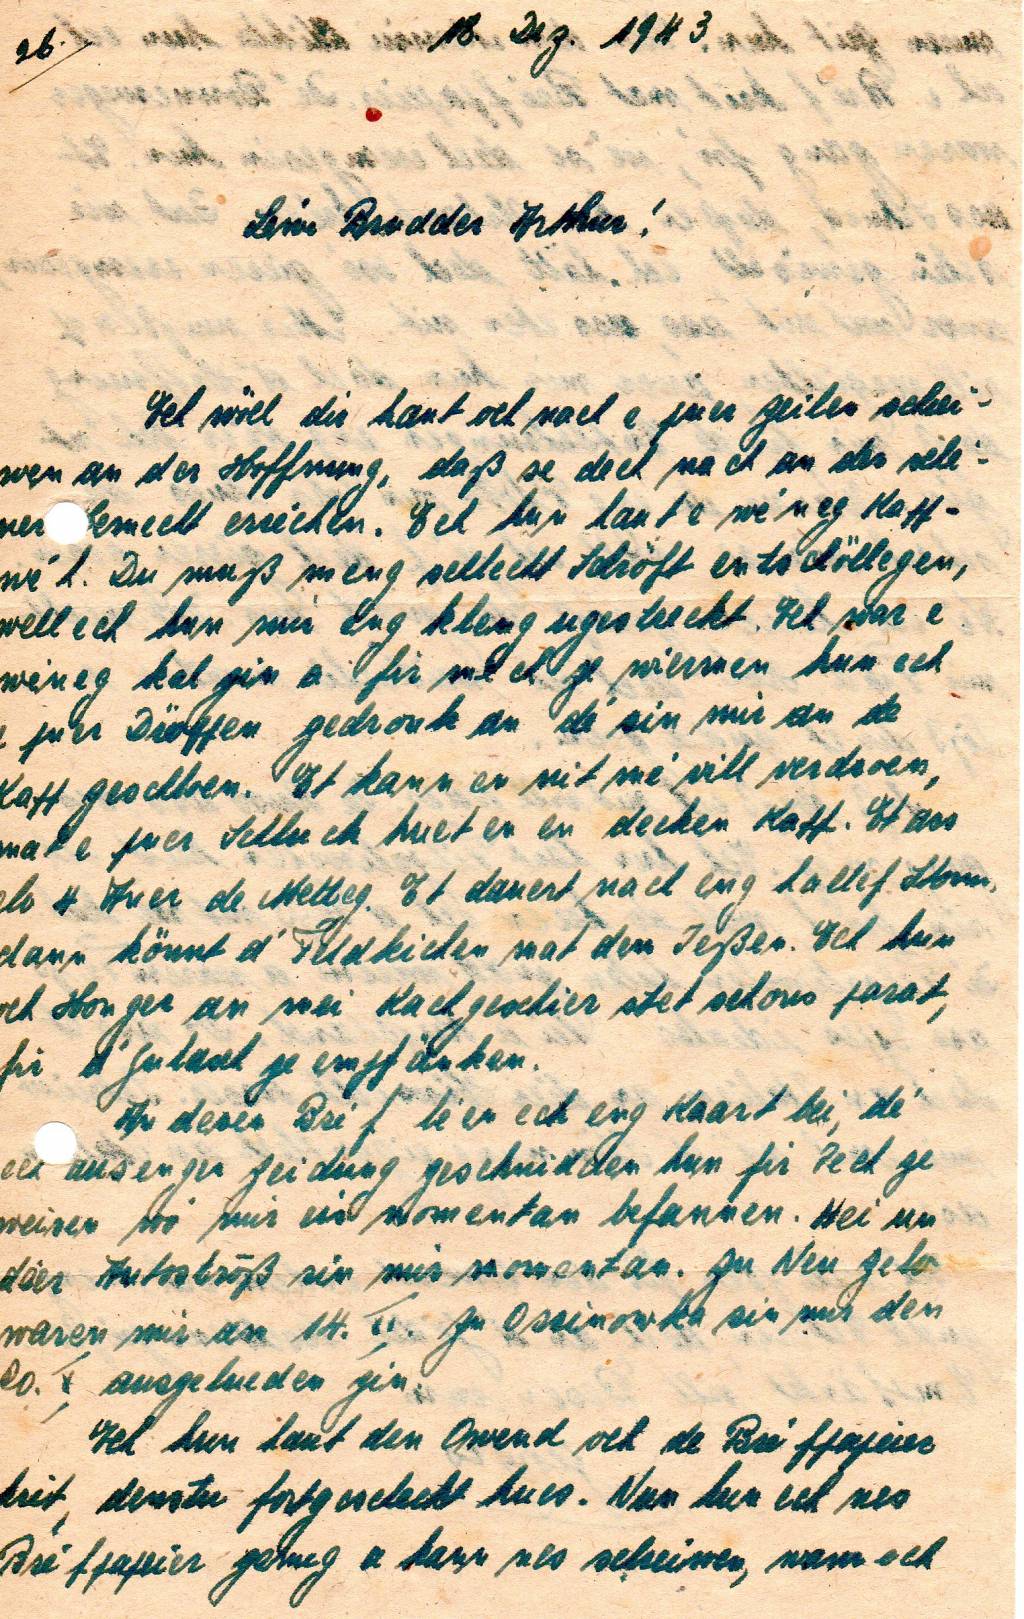 26.
18. Dez. 1943
Léiwe Brudder Arthur!
Ech wëll dir haut och nach e puer Zeilen schrei-
wen an der Hoffnung, daß se dech nach an der
erréchen. Ech hun haut e wéineg Kapp-
wéi. Du muß meng schlecht Schröft entschöllegen,
well ech hun mir eng ugestrecht. Ech war e
wéineg kal gin a fir mech ze wiermen hun ech
e puer Dröppen gedronk an dé sin mir an de
Kapp geschloen. Et kann en nit mé vill verdroen,
mat e puer Schluck huet en en decken Kapp. Et ass
elo 4 Auer de Metteg. Et dauert nach eng hallef Stonn,
dann könnt d'Feldkichen mat dem Ießen. Ech hun
och Honger an mei Kachgeschier stet schons parat,
fir d'Gulasch ze empfänken.
An desen Bréf leen ech eng Kaart bei, dé
ech aus enger Zeidung geschnidden hun fir Iech ze
weisen wo mir eis momentan befannen. Hei un
däer Autoströß sin mir momentan. Zu
waren mir an 14. Zu Ossinowka sin mir den
20. X ausgelueden gin.
Ech hun haut den Owend och de Bréfpapeier
krit, denstu fortgescheckt hues. Nun hun ech nes
Bréfpapeier genug a kann nes schreiwen, wann ech